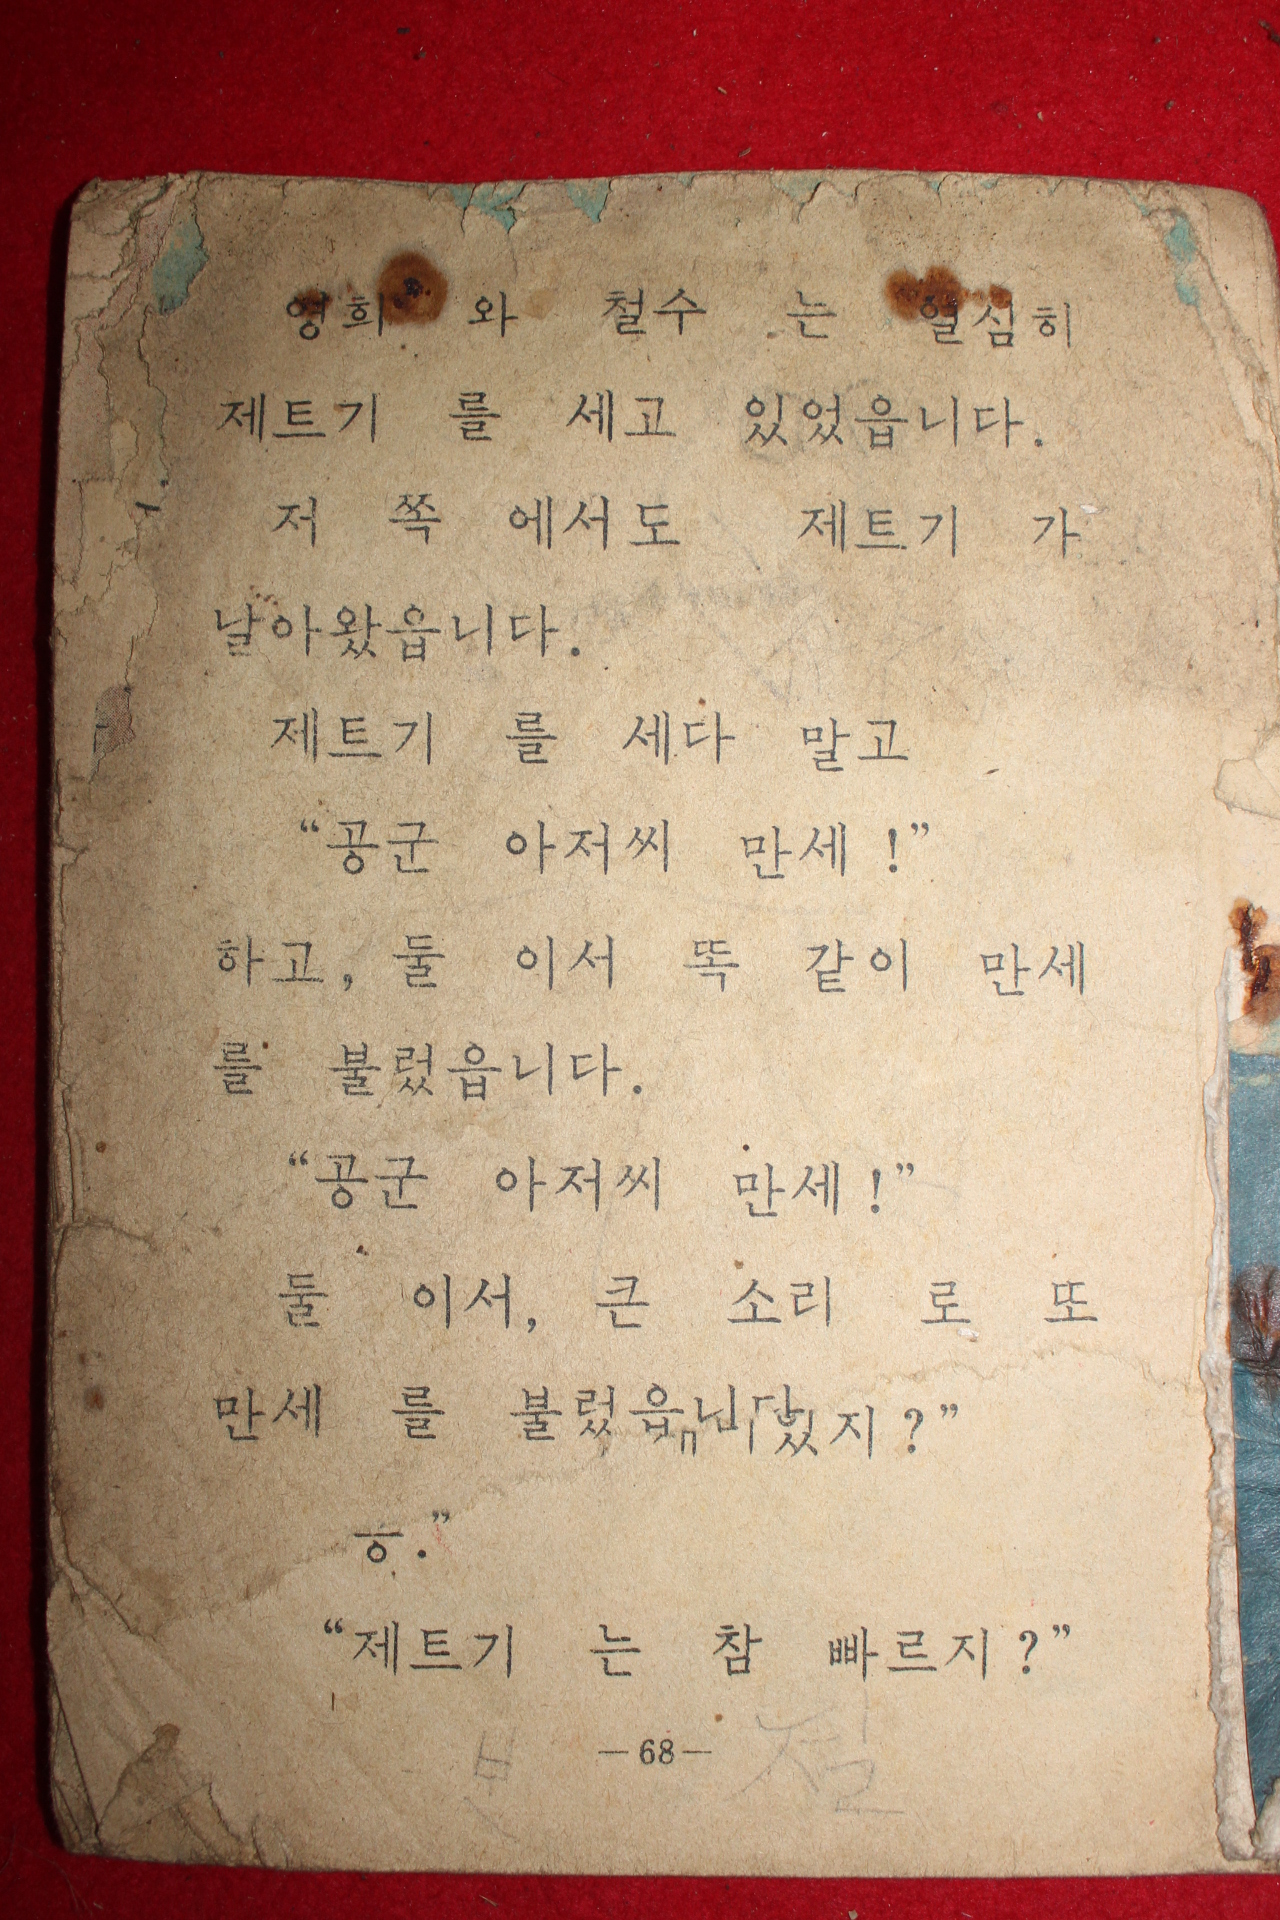 영희 와 철수 는 열심히
제트기 를 세고 있었읍니다.
저 쪽 에서도 제트기 가
날아왔읍니다.
제트기 를 세다 말고
“공군 아저씨 만세 !”
하고, 둘 이서 똑 같이 만세
를 불렀읍니다.
“공군 아저씨 만세 !”
둘 이서, 큰 소리 로 또
만세 를 불렀읍니다
지 ?”
ㅎ.”
“제트기 는 참 빠르지 ?”
—68—